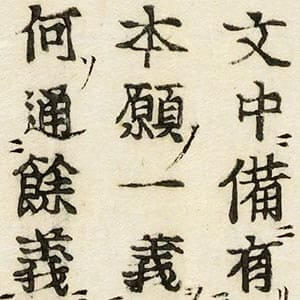 文中備有
本願ノ一義
何ソ通ニ餘義